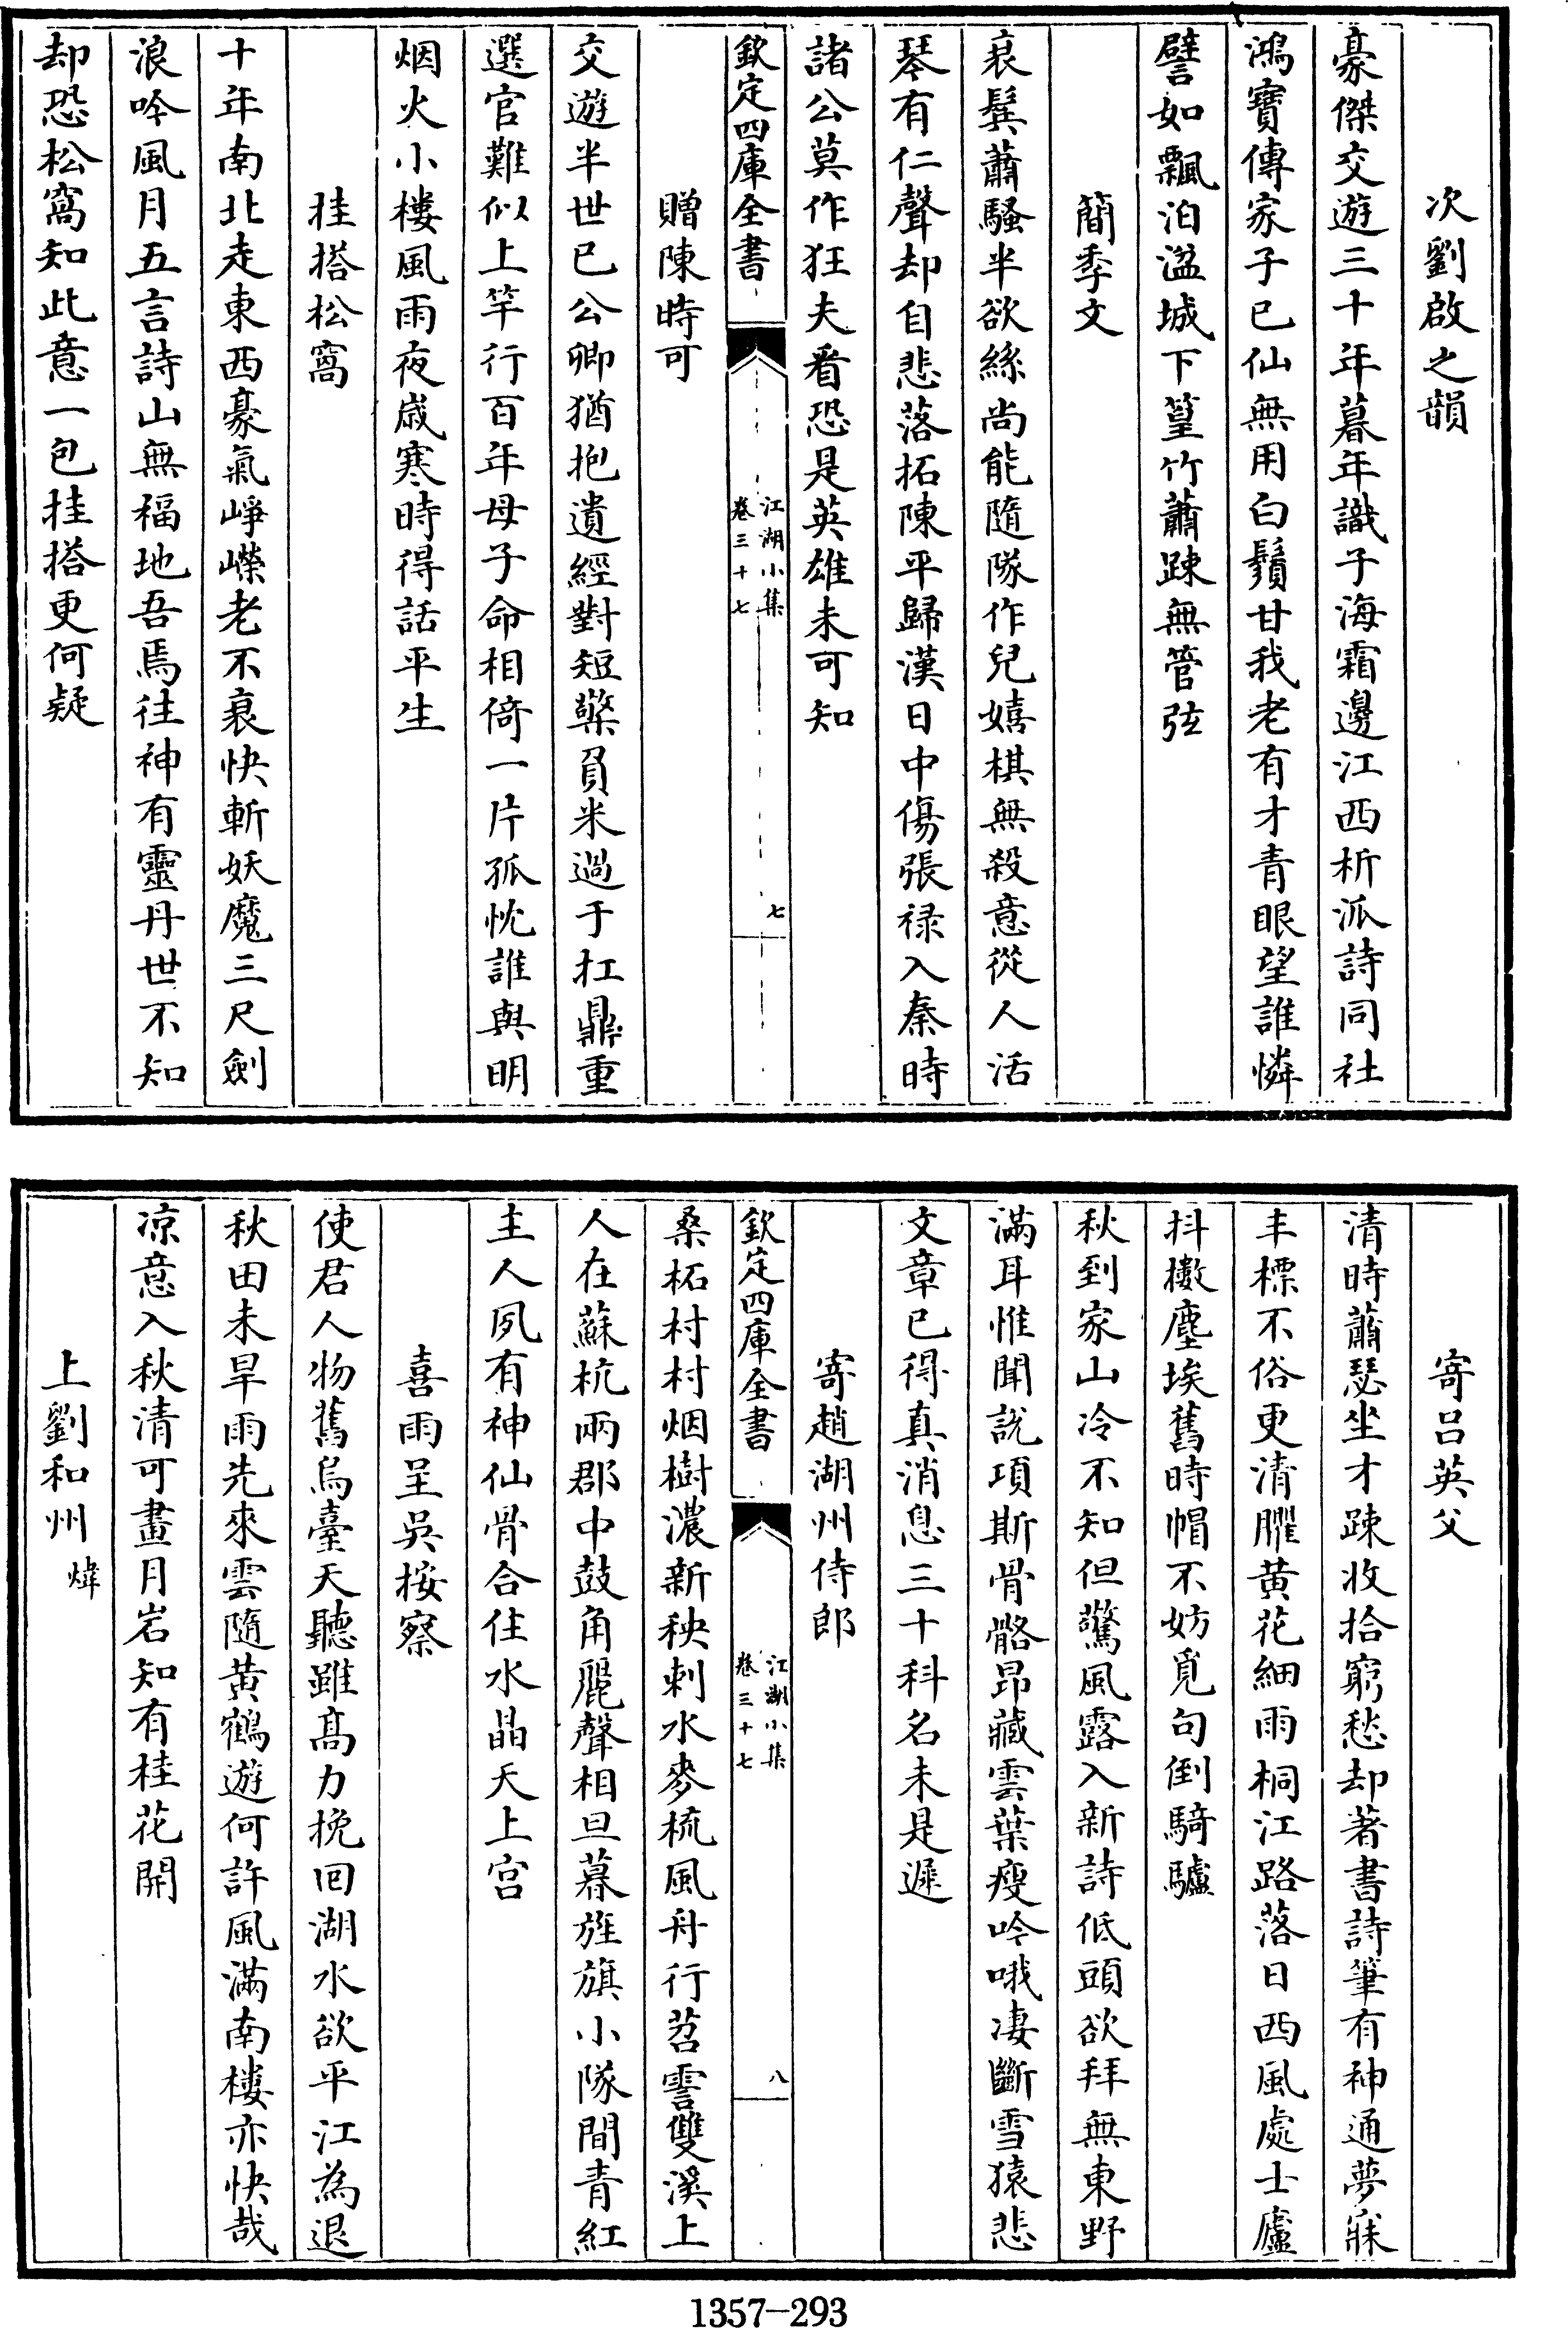 次劉啟之韻
豪傑交遊三十年暮年識子海霜邊江西析派詩同社
鴻寶傳家子已仙無用白鬚甘我老有才青眼望誰憐
譬如飄泊湓城下篁竹蕭踈無管弦
簡季文
衰鬂蕭騷半欲絲尚能隨隊作兒嬉棋無殺意從人活
琴有仁聲却自悲落拓陳平歸漢日中傷張禄入秦時
諸公莫作狂夫看恐是英雄未可知
欽定四庫全書
江湖小集
卷三十七
七
贈陳時可
交遊半世已公卿猶抱遺經對短檠負米過于扛鼎重
選官難似上竿行百年母子命相倚一片孤忱誰與明
烟火小樓風雨夜歲寒時得話平生
挂搭松窩
十年南北走東西豪氣崢嶸老不衰快斬妖魔三尺劍
浪吟風月五言詩山無福地吾焉往神有靈丹世不知
却恐松窩知此意一包挂搭更何疑
寄呂英父
清時蕭瑟坐才踈收拾窮愁却著書詩筆有神通夢寐
丰標不俗更清臞黃花細雨桐江路落日西風處士廬
抖擻塵埃舊時帽不妨覓句倒騎驢
秋到家山冷不知但驚風露入新詩低頭欲拜無東野
滿耳惟聞說項斯骨骼昂藏雲葉瘦吟哦凄斷雪猿悲
文章已得真消息三十科名未是遲
寄趙湖州侍郎
欽定四庫全書
江湖小集
卷三十七
八
桑柘村村烟樹濃新秧刺水麥梳風舟行苕霅雙溪上
人在蘇杭兩郡中鼓角麗聲相旦暮旌旗小隊間青紅
主人夙有神仙骨合住水晶天上宮
喜雨呈吳按察
使君人物舊烏臺天聽雖高力挽回湖水欲平江為退
秋田未旱雨先來雲隨黃鶴遊何許風滿南樓亦快哉
凉意入秋清可畫月岩知有桂花開
上劉和州煒
1357-293